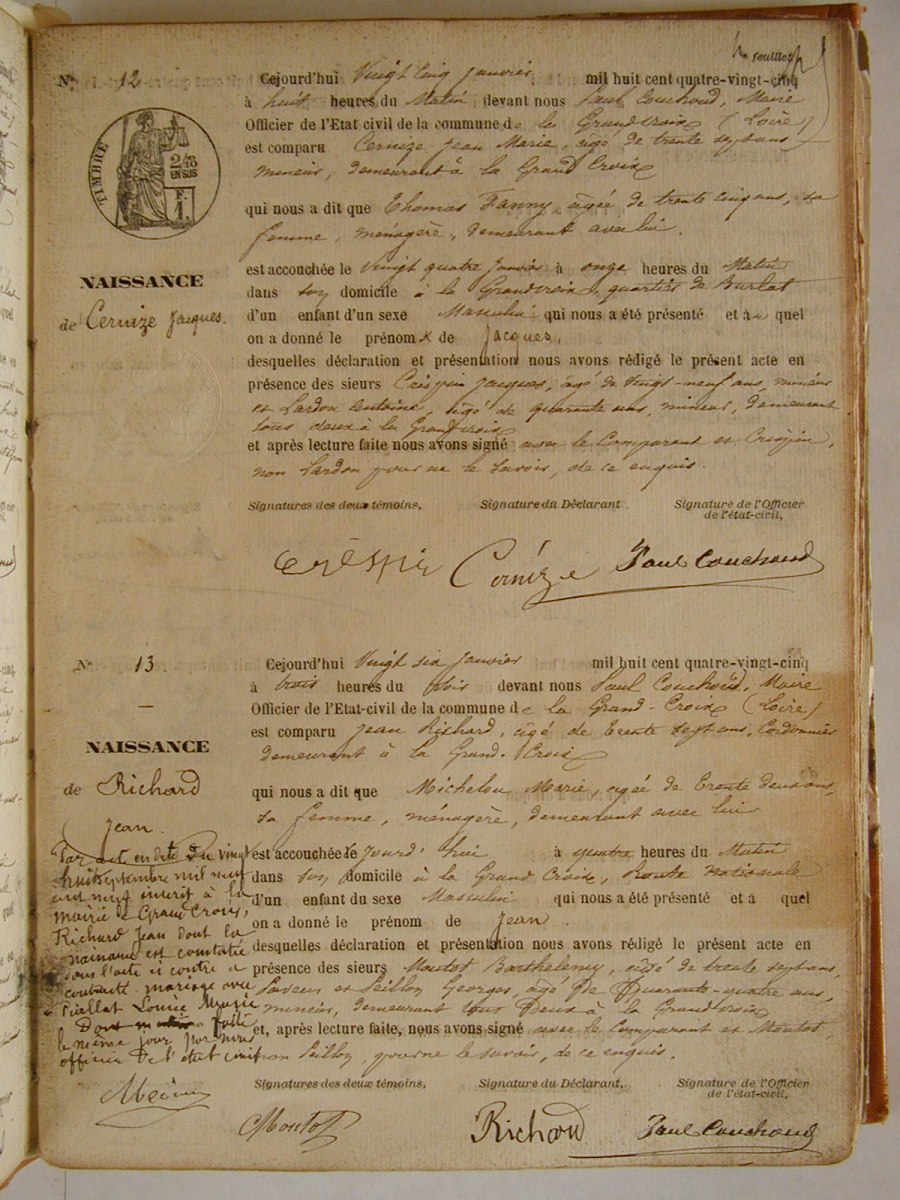 4e feuillet
N° 12
Cejourd'hui Vingt Cinq Janvier mil huit cent quatre-vingt-cinq
à huit heures du Matin devant nous Paul Couchoud, Maire
Officier de l'Etat civil de la commune de la Grandcroix (Loire)
est comparu Cernize Jean Marie, âgé de trente sept ans
mineur, demeurant à la Grand Croix
qui nous a dit que Thomas Fanny âgée de trente cinq ans, sa
femme, ménagère, demeurant avec lui.
est accouchée le vingt quatre Janvier à onze heures du Matin
dans son domicile à la Grandcroix, quartier de Burlat
d'un enfant d'un sexe Masculin qui nous a été présenté et au quel
on a donné le prénom de Jacques,
desquelles déclaration et présentation nous avons rédigé le présent acte en
présence des sieurs Crespin Jacques, âgé de vingt-neuf ans, mineur
et Lardon Antoine, âgé de quarante ans, mineur, demeurant
tous deux à la Grandcroix
et après lecture faite nous avons signé avec le Comparant et Crespin,
non Lardon pour ne le savoir, de ce enquis.
TIMBRE
2/10
EN SUS
F.
1.
NAISSANCE
de Cernize Jacques.
Signatures des deux témoins, Signature du Déclarant Signature de l'Officier
de l'état-civil,
Cernize Paul Couchoud
N° 13
Cejourd'hui Vingt six Janvier mil huit cent quatre-vingt-cinq
à trois heures du Soir devant nous Paul Couchoud, Maire
Officier de l'Etat-civil de la commune de la Grand-Croix (Loire)
est comparu Jean Richard, âgé de Trente sept ans, Cordonnier
demeurant à la Grand-Croix
qui nous a dit que Michelou Marie, âgée de Trente deux ans,
sa femme, ménagère, demeurant avec lui
est accouchée ce jourd'hui à quatre heures du Matin
dans son domicile à la Grand Croix, Route Nationale
d'un enfant du sexe Masculin qui nous a été présenté et a quel
on a donné le prénom de Jean
desquelles déclaration et présentation nous avons rédigé le présent acte en
présence des sieurs Moutot Barthelemy, âgé de trente sept ans,
et Seillon Georges, âgé de Quarante-quatre ans,
mineur, demeurant tous Deux à la Grandcroix
et, après lecture faite, nous avons signé avec le Comparant et Moutot
non Seillon, pour ne le savoir, de ce enquis.
NAISSANCE
de Richard
Jean.
Par acte en date du vingt
huit septembre mil neuf
cent neuf inscrit à la
mairie de Grand Croix,
Richard Jean dont la
naissance est constatée
dans l'acte ci contre a
contracté mariage avec
Louise Marie
le même jour par nous
officier de l'état civil
Signatures des deux témoins, Signature du Déclarant, Signature de l'Officier
de l'état-civil,
Moutot Richard Paul Couchoud